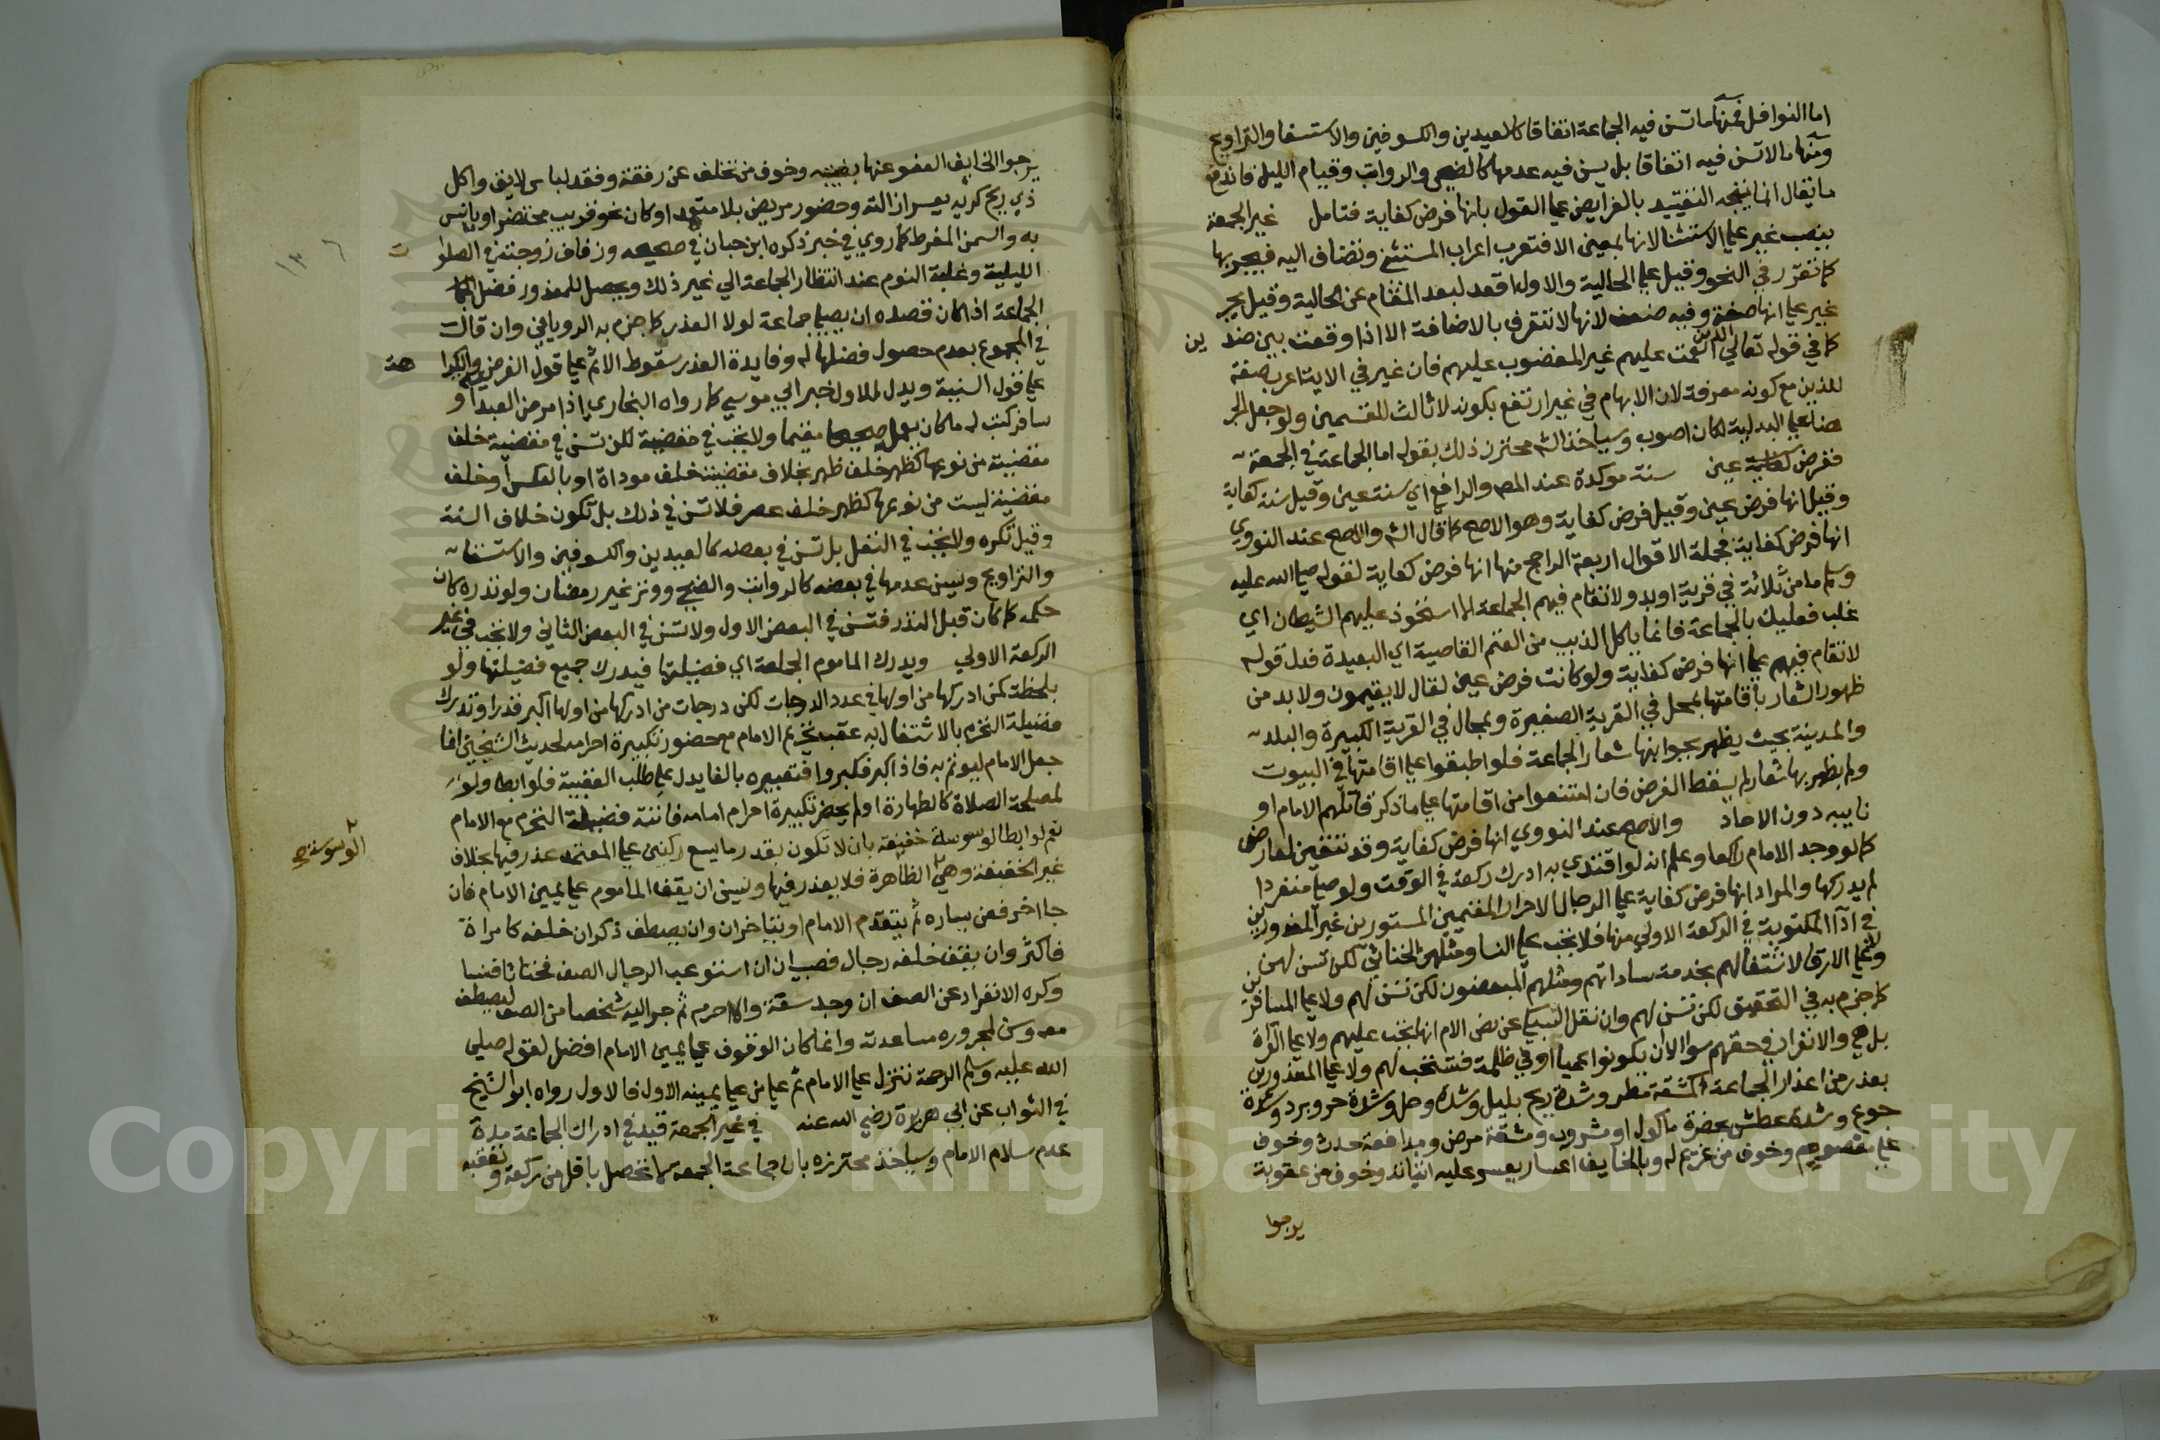 اما النوافل فمنها ما تسن فيه الجماعة اتفاقا كالعيدين والكسوفين والاستسقا والتراويح
ومنها مالا تسن فيه اتفاقا بل يسن فيه عدمها كالضحى والرواتب وقيام الليل فاندفع
ما يقال انما ينتجه التقييد بالفرايض على القول بانها فرض كفاية فتامل غير الجمعة
بنصب غير على الاستثنا لانها بمعنى الا فتعرب اعراب المستثنى وتضاف اليه فيجر بها
كما تقرر في النحو وقيل على الحالية والاول اقعد لبعد المقام عن الحالية وقيل بجر
غير على انها صفة وفيه ضعف لانها لا تتعرف بالاضافة الا اذا وقعت بين ضد ين
كما في قوله تعالى الذين انعمت عليهم غير المغضوب عليهم فان غير في الاية اعرب صفة
للذين مع كونه معرفة لان الابهام في غير ارتفع بكونه لا ثالث للقسمين ولو جعل الجر
هنا على البدلية لكان اصوب وسياخذ الش محترز ذلك بقوله اما الجماعة في الجمعة
ففرض عين سنة موكدة عند المص والرافعي اي سنة عين وقيل سنة كفاية
وقيل انها فرض عين وقيل فرض كفاية وهو الاصح كما قال الش والاصح عند النووي
انها فرض كفاية فجملة الاقوال اربعة الراجح منها انها فرض كفاية لقوله صلى الله عليه
وسلم ما من ثلاثة في قرية او بدو لا تقام فيهم الجماعة الا استحوذ عليهم الشيطان اي
غلب فعليك بالجماعة فانما ياكل الذيب من الغنم القاصية اي البعيدة فدل قوله
لا تقام فيهم على انها فرض كفاية ولو كانت فرض عين لقال لا يقيمون ولا بد من
ظهور الشعار باقامتها بمحل في القرية الصغيرة وبمحال في القرية الكبيرة والبلد
والمدينة بحيث يظهر بجوانبها شعار الجماعة فلو اطبقوا على اقامتها في البيوت
ولم يظهر بها شعار لم يسقط الفرض فان امتنعوا من اقامتها على ما ذكر قاتلهم الامام او
نايبه دون الاحاد والاصح عند النووي انها فرض كفاية وقد تتعين لعارض
كما لو وجد الامام راكعا وعلم انه لو اقتدي به ادرك ركعة في الوقت ولو صلى منفردا
لم يدركها والمراد انها فرض كفاية على الرجال الاحرار المقيمين المستورين غير المعذورين
في ادآ المكتوبة في الركعة الاولى منها فلا تجب على النسا ومثلهن الخناثى لكن تسن لهن
ولا على الارقا لاشتغالهم بخدمة ساداتهم ومثلهم المبعضون لكن تسن لهم ولا على المسافرين
كما جزم به في التحقيق لكن تسن لهم وان نقل السبكي عن نص الام انها تجب عليهم ولا على العراة
بل هي والانفراد في حقهم سوا الا ان يكونوا عميا او في ظلمة فتستحب لهم ولا على المعذورين
بعذر من اعذار الجماعة كمشقة مطر وشدة ريح بليل وشدة وحل وشدة حر وبرد وشدة
جوع وشدة عطش بحضرة ماكول او مشروب ومشقة مرض ومدافعة حدث وخوف
على معصوم وخوف من غريم له وبالخايف اعسار يعسر عليه اثباته وخوف من عقوبة
يرجوا
يرجوا الخايف العفو عنها بغيبته وخوف من تخلف عن رفقة وفقد لباس لايق واكل
ذي ريح كريه يعسر ازالته وحضور مريض بلا متعهد او كان نحو قريب محتضر او يانس
به والسمن المفرط كما روي في خبر ذكره ابن حبان في صحيحه وزفاف زوجته في الصلوات
الليلية وغلبة النوم عند انتظار الجماعة الى غير ذلك ويحصل للمعذور فضل
الجماعة اذا كان قصده ان يصلي جماعة لولا العذر كما جزم به الروياني وان قال
في المجموع بعدم حصول فضلها له وفايدة العذر سقوط الاثم على قول الفرض والكراهة
على قول السنية ويدل للاول خبر ابي موسي كما رواه البخاري اذا مرض العبد او
سافر كتب له ما كان يعمل صحيحا مقيما ولا تجب في مقضية لكن تسن في مقضية خلف
مقضية من نوعها كظهر خلف ظهر بخلاف مقضية خلف موداة او بالعكس وخلف
مقضية ليست من نوعها كظهر خلف عصر فلا تسن في ذلك بل تكون خلاف السنة
وقيل تكره ولا تجب في النفل بل تسن في بعضه كالعيدين والكسوفين والاستسقا
والتراويح ويسن عدمها في بعضه كالرواتب والضحى ووتر غير رمضان ولو نذره كان
حكمه كما كان قبل النذر فتسن في البعض الاول ولا تسن في البعض الثاني ولا تجب في غير
الركعة الاولى ويدرك الماموم الجماعة اي فضيلتها فيدرك جميع فضيلتها ولو
بلحظة كمن ادركها من اولها في عدد الدرجات لكن درجات من ادركها من اولها اكبر قدرا وتدرك
فضيلة التحرم بالاشتغال به عقب تحرم الامام مع حضور تكبيرة احرامه لحديث الشيخين انما
جعل الامام ليوتم به فاذا كبر فكبروا فتعبيره بالفا يدل على طلب العقبية فلو ابطا ولو
لمصلحة الصلاة كالطهارة او لم يحضر تكبيرة احرام امامه فاتته فضيلة التحرم مع الامام
نعم لو ابطا لوسوسة خفيفة بان لا تكون بقدر ما يسع ركنين على المعتمد عذر فيها بخلاف
الوسوسة
غير الخفيفة وهي الظاهرة فلا يعذر فيها ويسن ان يقف الماموم على يمين الامام فان
جا اخر فعن يساره ثم يتقدم الامام او يتاخران وان يصطف ذكران خلفه كامراة
فاكثر وان يقف خلفه رجال فصبيان ان استوعب الرجال الصف فخناثا فنسا
وكره الانفراد عن الصف ان وجد سعة والا احرم ثم جر اليه شخصا من الصف ليصطف
معه وسن لمجروره مساعدته وانما كان الوقوف على يمين الامام افضل لقوله صلى
الله عليه وسلم الرحمة تنزل على الامام ثم على من على يمينه الاول فالاول رواه ابو الشيخ
في الثواب عن ابي هريرة رضي الله عنه في غير الجمعة قيد في ادراك الجماعة مدة
عدم سلام الامام وسياخذ محترزه بان جماعة الجمعة لا تحصل باقل من ركعة و